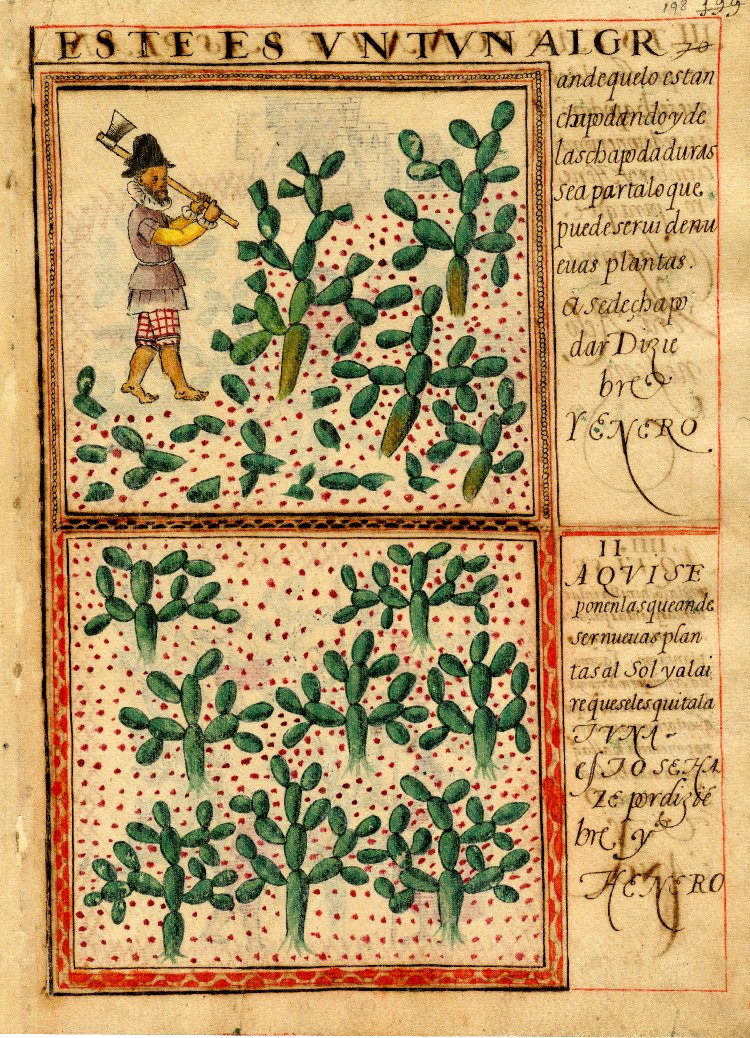 198 199
ESTE ES VN TVNAL GR
ande quelo estan
chapodando y de
las chapodaduras
se aparta lo que
puede serui denu
euas plantas.
A se de chapo
dar Dizie
bre
YENERO
II
AQVI SE
ponen las que an de
ser nueuas plan
tas al Sol y al ai
re que se les quita la
TVNA
esTO SE HA
ZE por dizië
bre y
HENERO